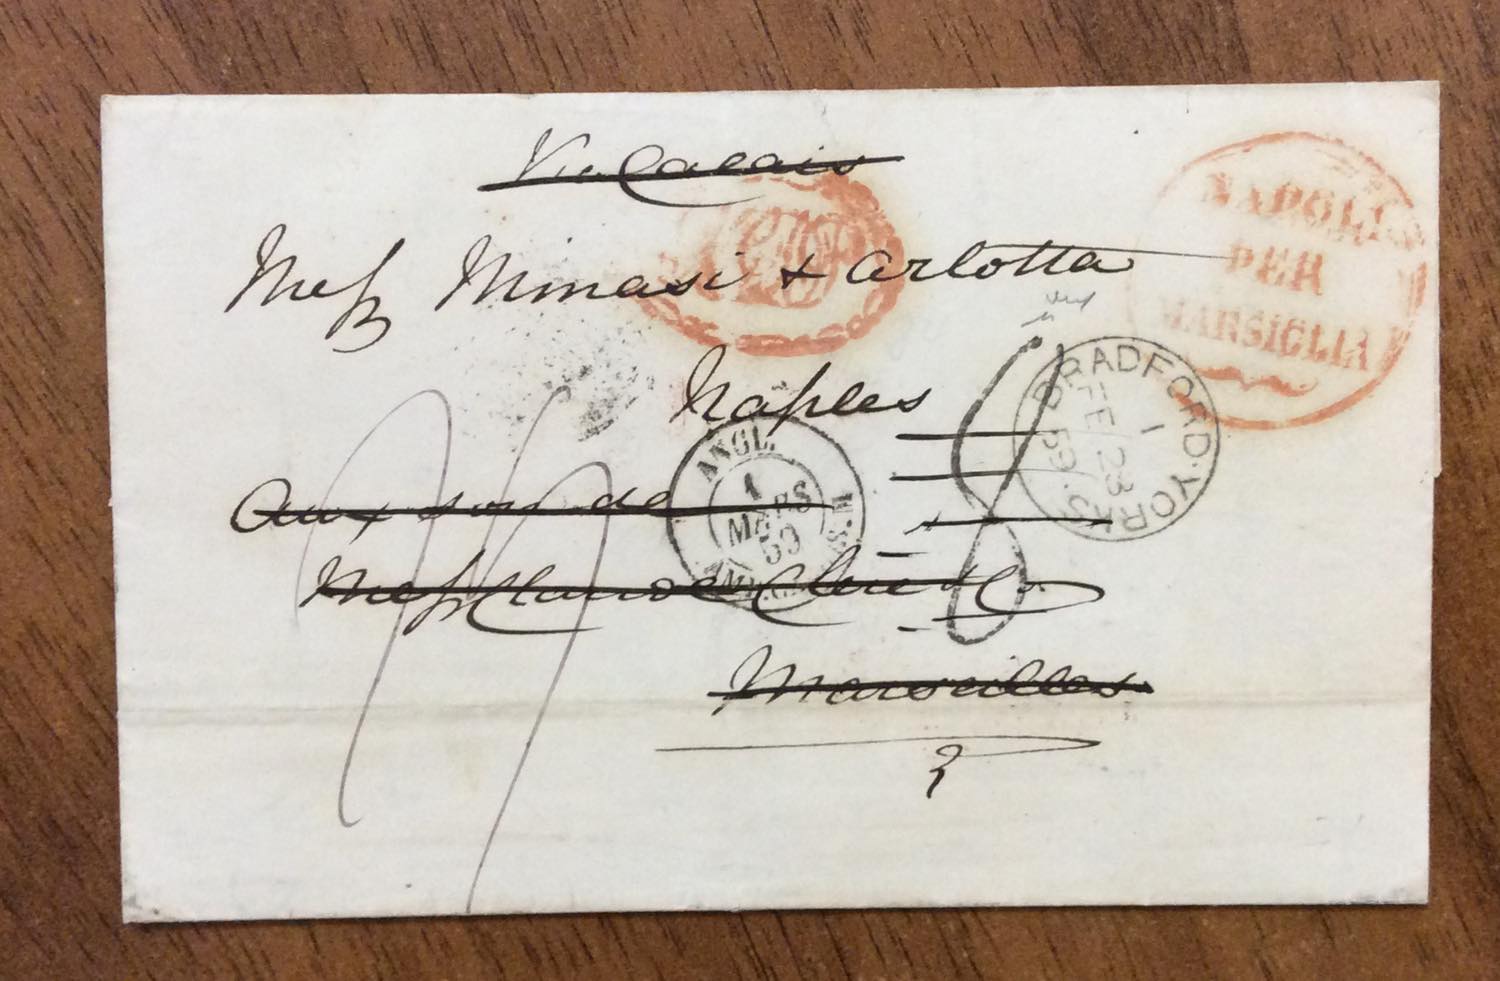 Via Calais
Mess Minasi & Arlotta
Naples
Aux soins de
Mess Clerc & Co.
Marseilles
NAPOLI
PER
MARSIGLIA
BRADFORD·YORKS
1
FE 23
59
ANGL.
1
MARS
59